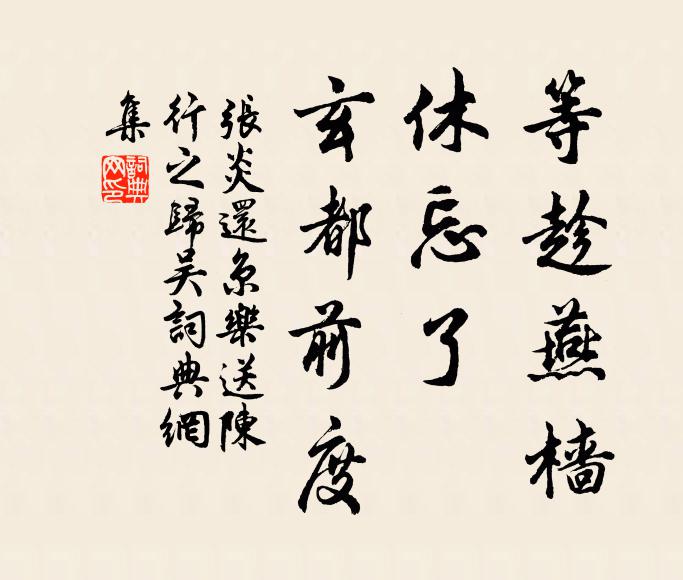 等趁燕檣
休忘了
玄都前度
張炎還京樂送陳
行之歸吴詞典網
集
詞典
网印